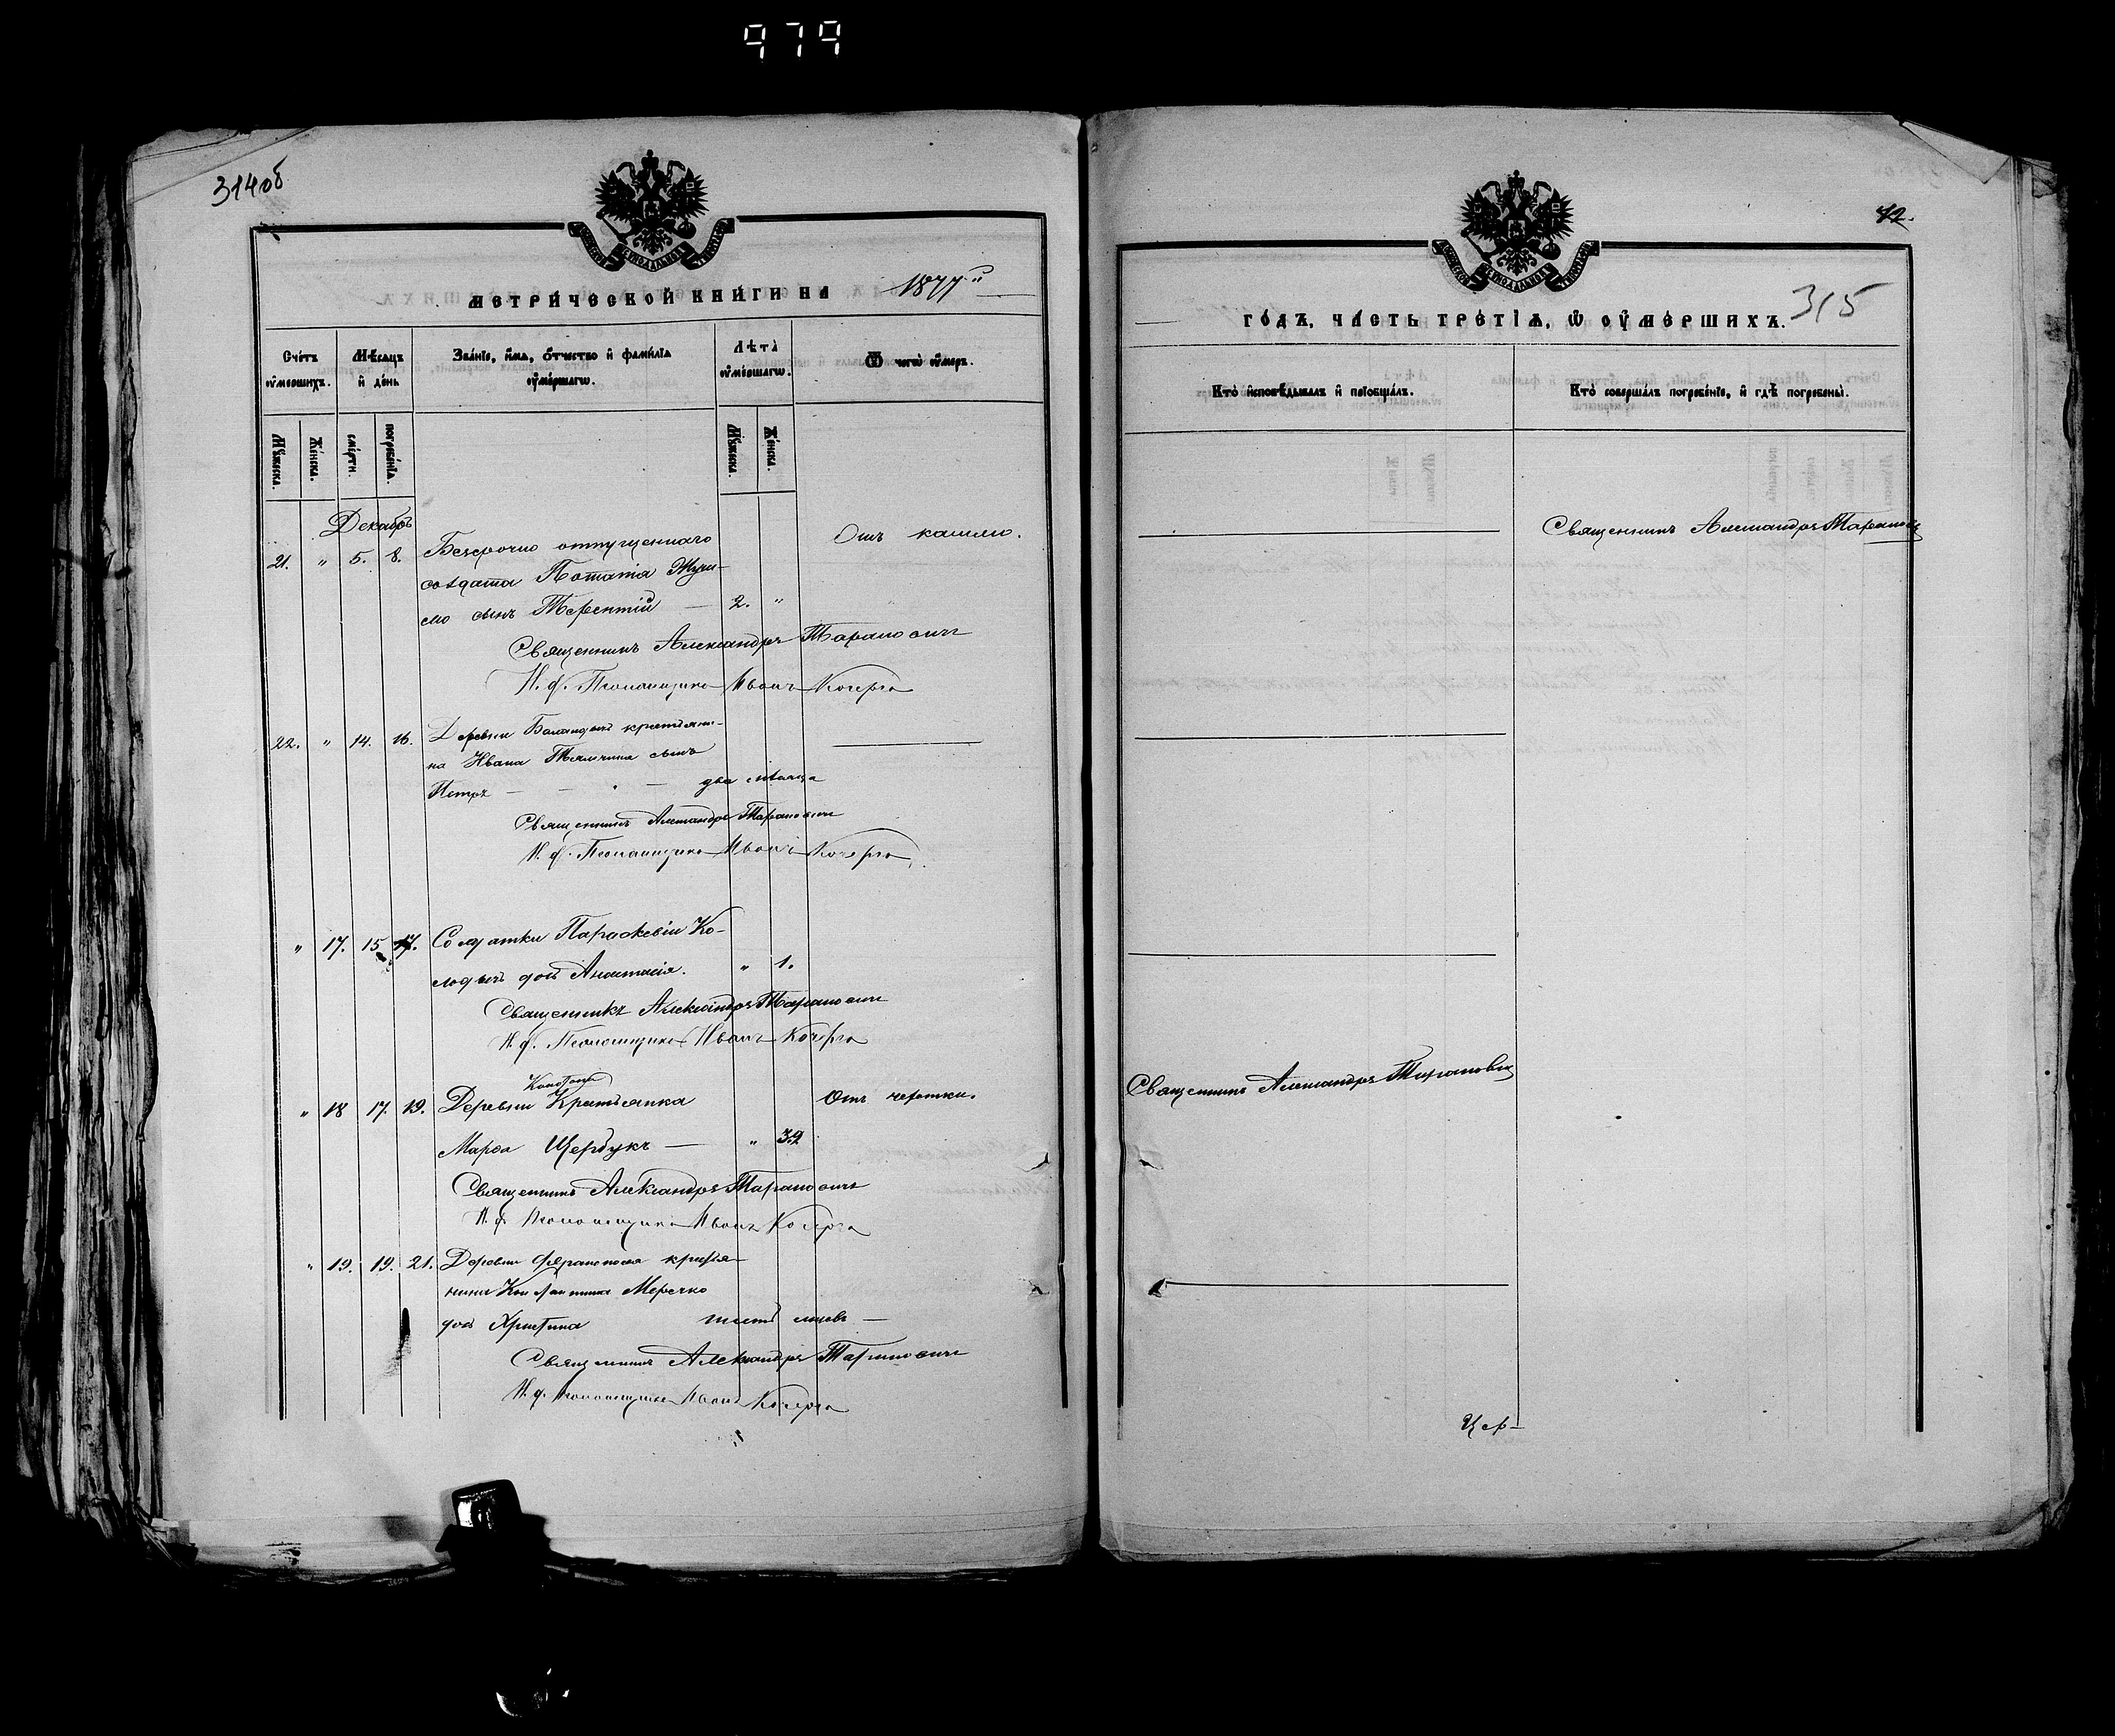 979
314об
МЕТРИЧЕСКОЙ КНИГИ НА 1877й
Счетъ умершихъ.
Мѣсяцъ и день
Званіе, имя, отчество и фамилія умершагѡ.
Лѣта умершагѡ.
Ѿ чегѡ умеръ.
Мужеска.
Женска.
смерти.
погребенія.
Мужеска.
Женска.
Декабрь
21. " 5. 8. Безсрочно отпущеннаго
солдата Потапія
сынъ Терентій — 2. "
Отъ кашлю.
Священникъ Александръ Тарановичъ
И. д. Псаломщика Иванъ Кочерга
22. " 14. 16. Деревни крестьяни-
на Ивана сынъ
Петръ — — два мѣсяца
Священникъ Александръ Тарановичъ
И. д. Псаломщика Иванъ Кочерга
" 17. 15 17. Солдатки Параскевіи Ко-
дочь Анастасія. " 1.
Священникъ Александръ Тарановичъ
И. д. Псаломщика Иванъ Кочерга
" 18 17. 19. Деревни Крестьянка
Марѳа Щербукъ — " 32
Отъ чехотки.
Священникъ Александръ Тарановичъ
И. д. Псаломщика Иванъ Кочерга
" 19. 19. 21. Деревни
Меречко
дочь Христина шесть
Священникъ Александръ Тарановичъ
И. д. Псаломщика Иванъ Кочерга
42.
315
ГОДЪ, ЧАСТЬ ТРЕТІЯ, Ѡ УМЕРШИХЪ.
Кто исповѣдывалъ и пріобщалъ.
Кто совершалъ погребеніе, и гдѣ погребены.
Священникъ Александръ Тарановичъ
Священникъ Александръ Тарановичъ
Цер-